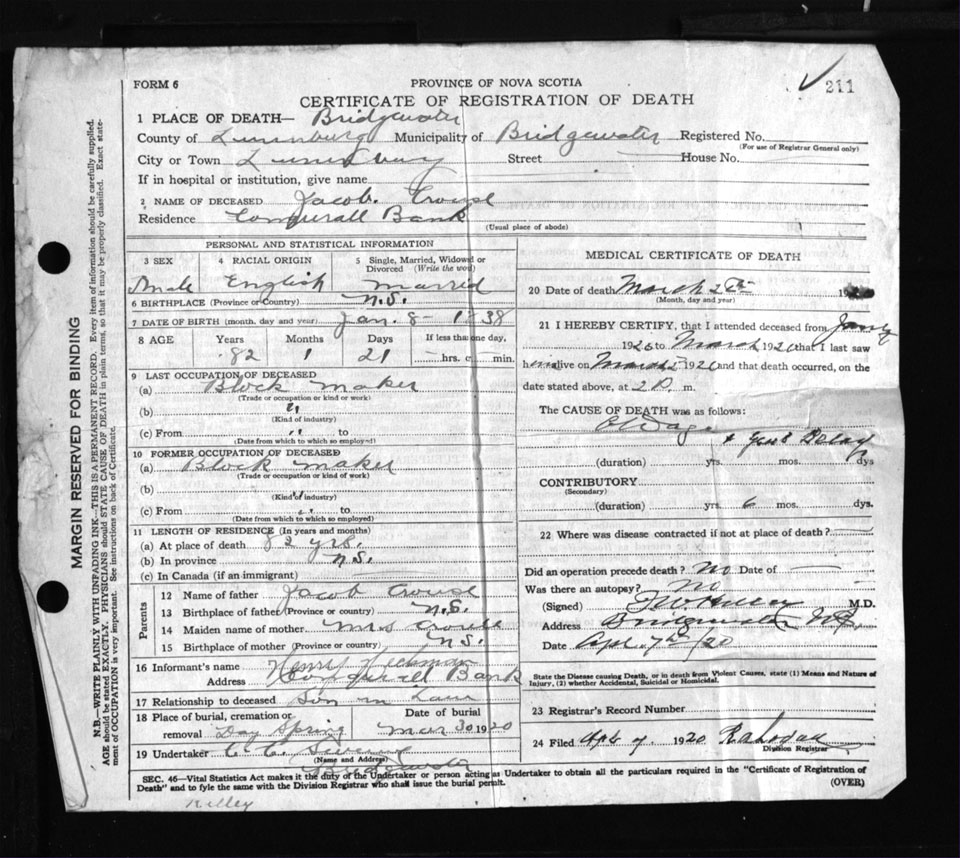 FORM 6
PROVINCE OF NOVA SCOTIA
211
CERTIFICATE OF REGISTRATION OF DEATH
1 PLACE OF DEATH— Bridgewater
County of Lunenburg Municipality of Bridgewater Registered No.
(For use of Registrar General only)
City or Town Lunenburg Street House No.
If in hospital or institution, give name
2 NAME OF DECEASED Jacob. Crouse
Residence Conquerall Bank
(Usual place of abode)
PERSONAL AND STATISTICAL INFORMATION
3 SEX
Male
4 RACIAL ORIGIN
English
5 Single, Married, Widowed or Divorced (Write the word)
Married
6 BIRTHPLACE (Province or Country) N.S.
7 DATE OF BIRTH (month, day and year) Jan. 8 - 1838
8 AGE Years Months Days If less than one day,
82 1 21 hrs. or min.
9 LAST OCCUPATION OF DECEASED
(a) Block maker
(Trade or occupation or kind of work)
(b) "
(Kind of industry)
(c) From "
(Date from which to which so employed)
10 FORMER OCCUPATION OF DECEASED
(a) Block maker
(Trade or occupation or kind of work)
(b) "
(Kind of industry)
(c) From "
(Date from which to which so employed)
11 LENGTH OF RESIDENCE (In years and months)
(a) At place of death 82 yrs.
(b) In province N.S.
(c) In Canada (if an immigrant)
Parents
12 Name of father Jacob Crouse
13 Birthplace of father (Province or country) N.S.
14 Maiden name of mother Mrs Crouse
15 Birthplace of mother (Province or country) N.S.
16 Informant's name Henry
Address Conquerall Bank
17 Relationship to deceased Son in Law
18 Place of burial, cremation or removal Day Spring
Date of burial
Mar 30 1920
19 Undertaker C. C.
(Name and Address)
Bridgewater
MEDICAL CERTIFICATE OF DEATH
20 Date of death March
(Month, day and year)
21 I HEREBY CERTIFY, that I attended deceased from
1920 to March 1920 that I last saw
him alive on March 1920 and that death occurred, on the
date stated above, at 2 P. m.
The CAUSE OF DEATH was as follows:
Old age
(duration) yrs. mos. dys
CONTRIBUTORY
(Secondary)
(duration) yrs. 6 mos. dys.
22 Where was disease contracted if not at place of death?
Did an operation precede death? No Date of
Was there an autopsy? No
(Signed) M.D.
Address Bridgewater NS
Date Apr. 7th/20
State the Disease causing Death, or in death from Violent Causes, state (1) Means and Nature of Injury, (2) whether Accidental, Suicidal or Homicidal.
23 Registrar's Record Number
24 Filed Apr 7. 1920
Division Registrar
SEC. 46—Vital Statistics Act makes it the duty of the Undertaker or person acting as Undertaker to obtain all the particulars required in the "Certificate of Registration of
Death" and to fyle the same with the Division Registrar who shall issue the burial permit. (OVER)
Kelley
MARGIN RESERVED FOR BINDING
N.B.—WRITE PLAINLY WITH UNFADING INK—THIS IS A PERMANENT RECORD. Every item of information should be carefully supplied.
AGE should be stated EXACTLY. PHYSICIANS should STATE CAUSE OF DEATH in plain terms, so that it may be properly classified. Exact state-
ment of OCCUPATION is very important. See instructions on back of Certificate.